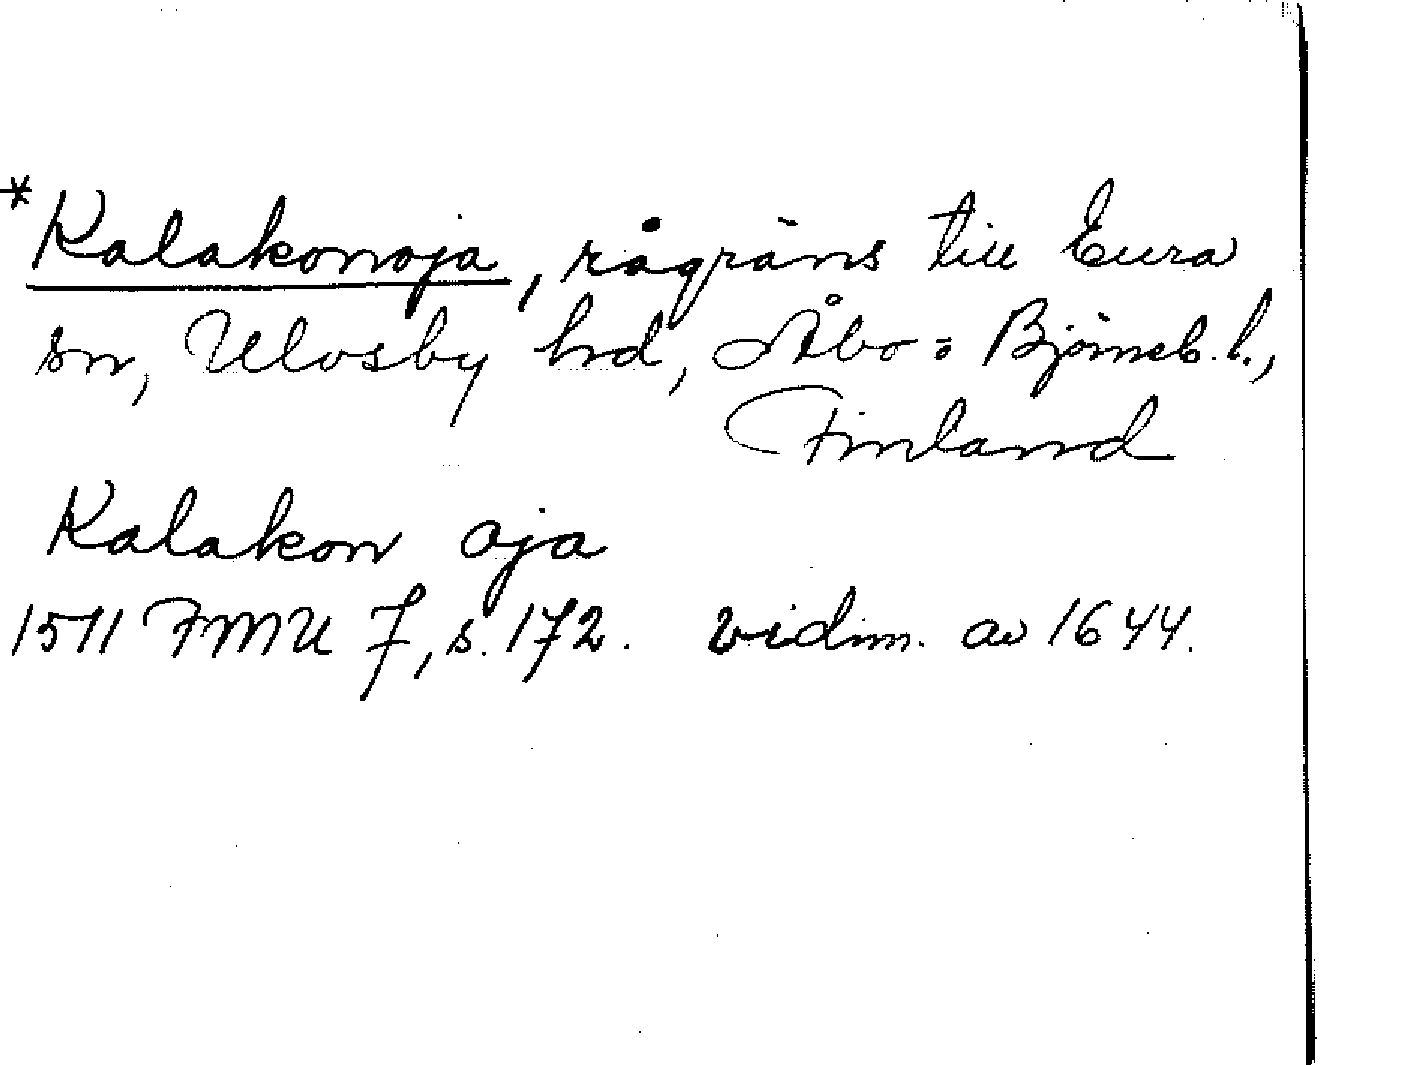 *Kalakonoja, rågräns till Eura
sn, Ulvsby hrd, Åbo = Björneb. l.,
Finland
Kalakon oja
1511 FMU 7, s. 172. vidim. av 1644.